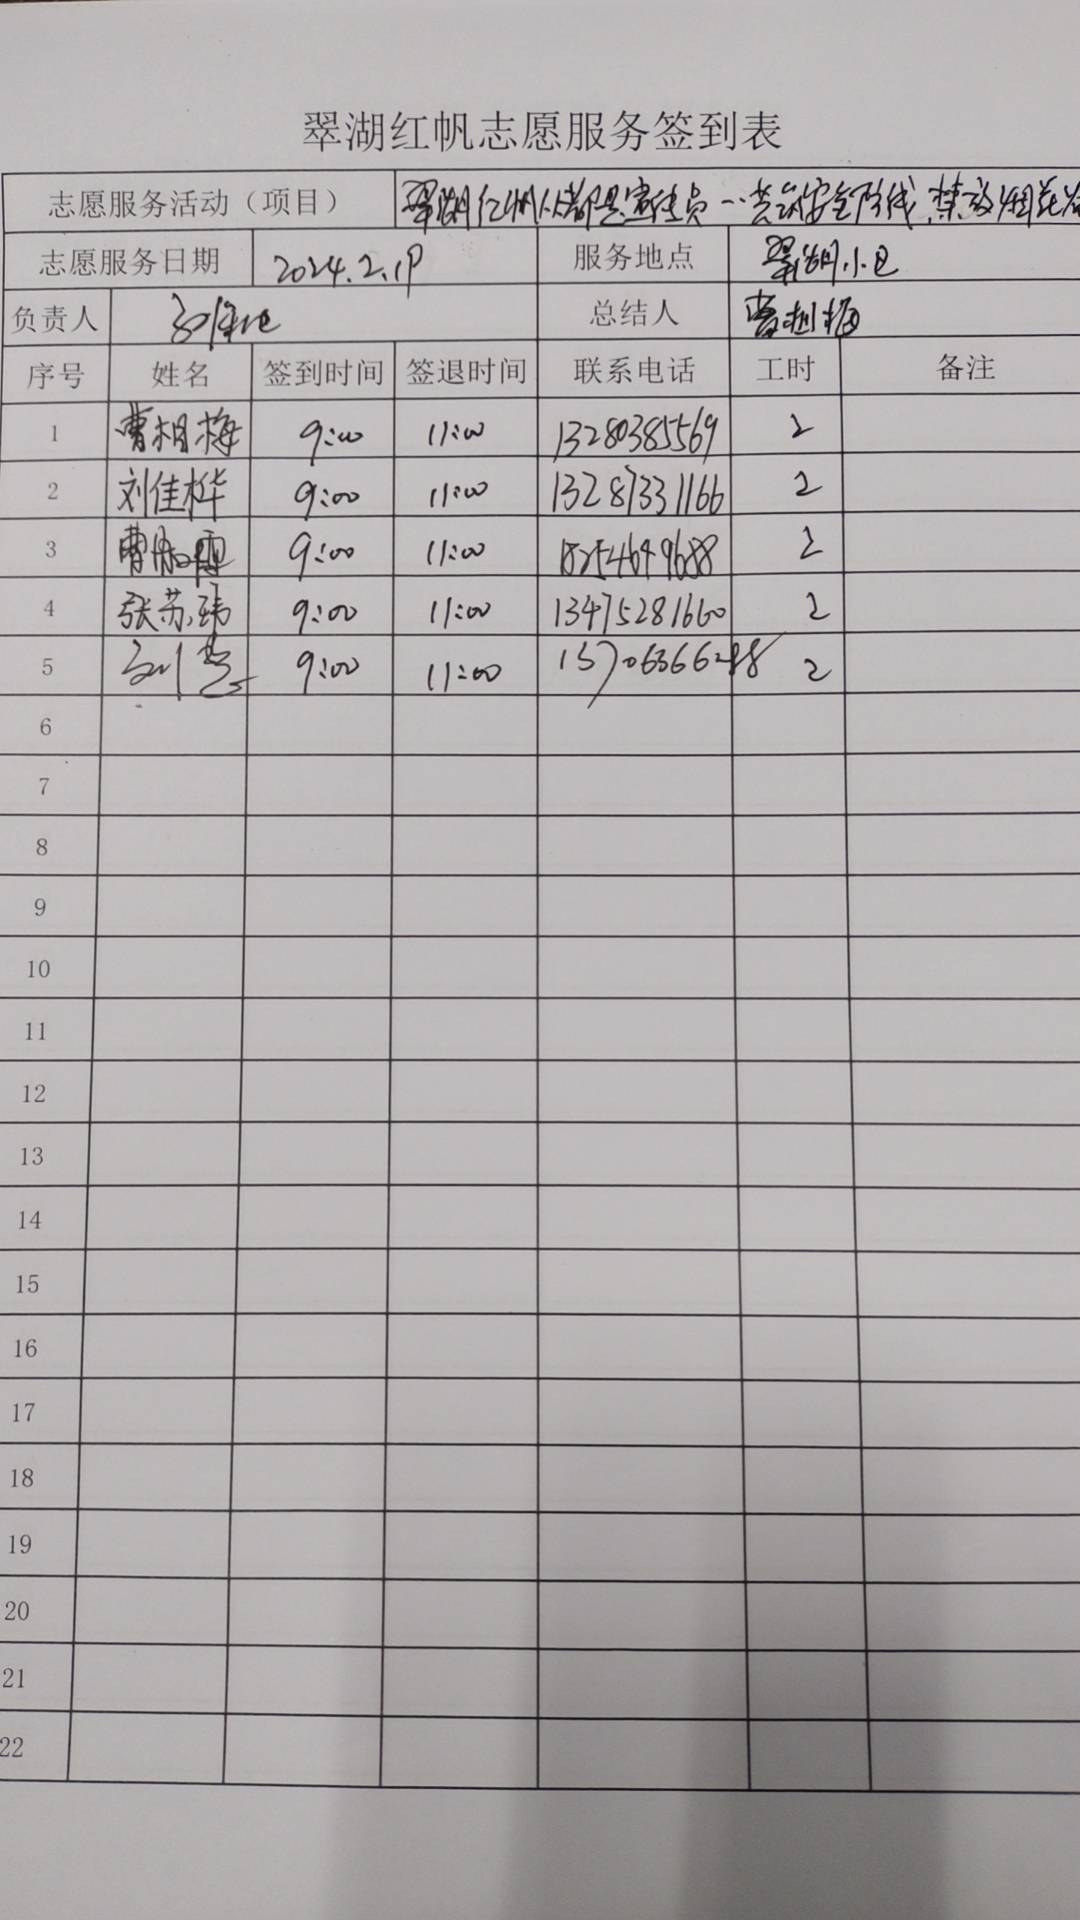 翠湖红帆志愿服务签到表
志愿服务活动（项目） 翠湖红帆人人都是宣传员--共筑安全防线,禁放烟花
志愿服务日期 2024.2.19 服务地点 翠湖小区
负责人 总结人 曹相梅
序号 姓名 签到时间 签退时间 联系电话 工时 备注
1 曹相梅 9:00 11:00 13280385569 2
2 刘佳桦 9:00 11:00 13287331166 2
3 9:00 11:00 18254649688 2
4 张苏玮 9:00 11:00 13475281660 2
5 9:00 11:00 2
6
7
8
9
10
11
12
13
14
15
16
17
18
19
20
21
22